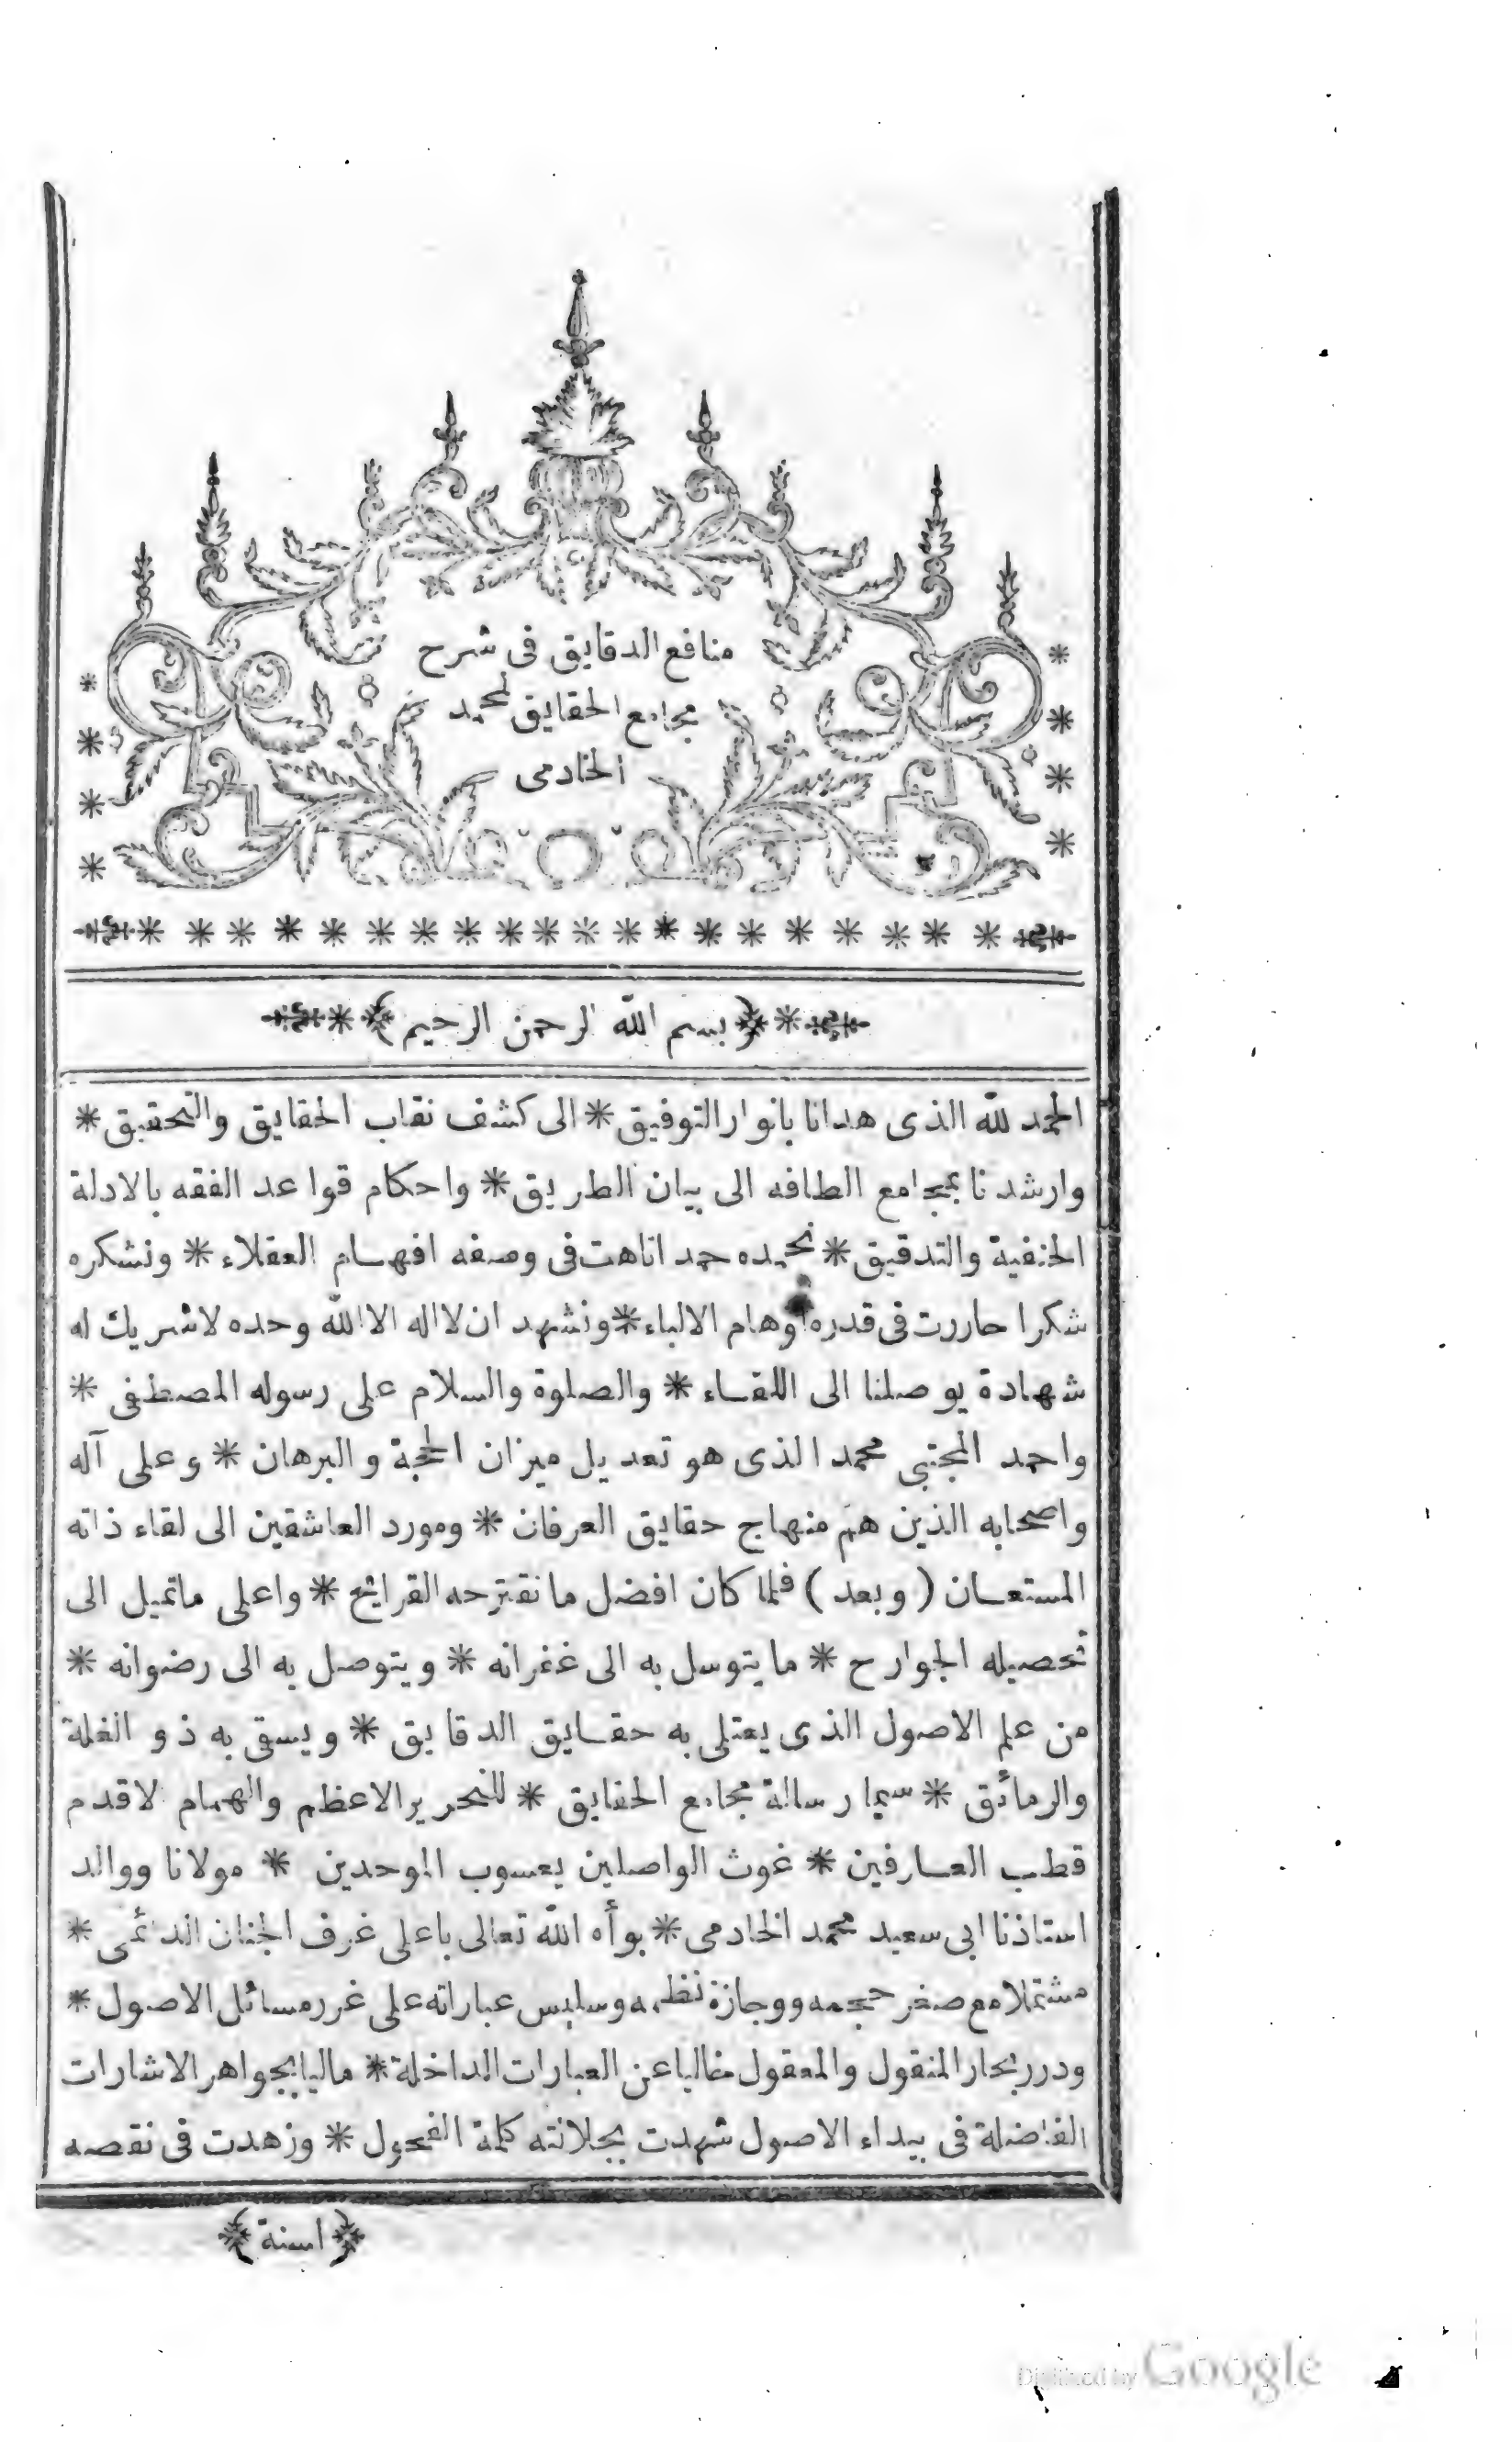 منافع الدقايق فى شرح
مجامع الحقايق لمحمد
الخادمى
بسم الله الرحمن الرحيم
الحمد لله الذى هدانا بانوار التوفيق * الى كشف نقاب الحقايق والتحقيق *
وارشدنا بمجامع الطافه الى بيان الطريق * واحكام قواعد الفقه بالادلة
الحنفية والتدقيق * نحمده حمدا تاهت فى وصفه افهام العقلاء * ونشكره
شكرا حاررت فى قدره اوهام الالباء * ونشهد ان لااله الاالله وحده لاشريك له
شهادة يوصلنا الى اللقاء * والصلوة والسلام على رسوله المصطفى *
واحمد المجتبى محمد الذى هو تعديل ميزان الحجة والبرهان * وعلى آله
واصحابه الذين هم منهاج حقايق العرفان * ومورد العاشقين الى لقاء ذاته
المستعان (وبعد) فلما كان افضل ما نقترحه القرائح * واعلى ماتميل الى
تحصيله الجوارح * ما يتوسل به الى غفرانه * ويتوصل به الى رضوانه *
من علم الاصول الذى يعتلى به حقايق الدقايق * ويسقى به ذو الغلة
والرمائق * سيما رسالة مجامع الحقايق * للنحرير الاعظم والهمام لاقدم
قطب العارفين * غوث الواصلين يعسوب الموحدين * مولانا ووالد
استاذنا ابى سعيد محمد الخادمى * بوأه الله تعالى باعلى غرف الجنان الدائمى *
مشتملا مع صغر حجمه ووجازة نظمه وسليس عباراته على غرر مسائل الاصول *
ودرر بحار المنقول والمعقول خاليا عن العبارات الداخلة * ماليا بجواهر الاشارات
الفاضلة فى بيداء الاصول شهدت بجلالته كلة الفحول * وزهدت فى نقصه
(اسنة)
Digitized by Google